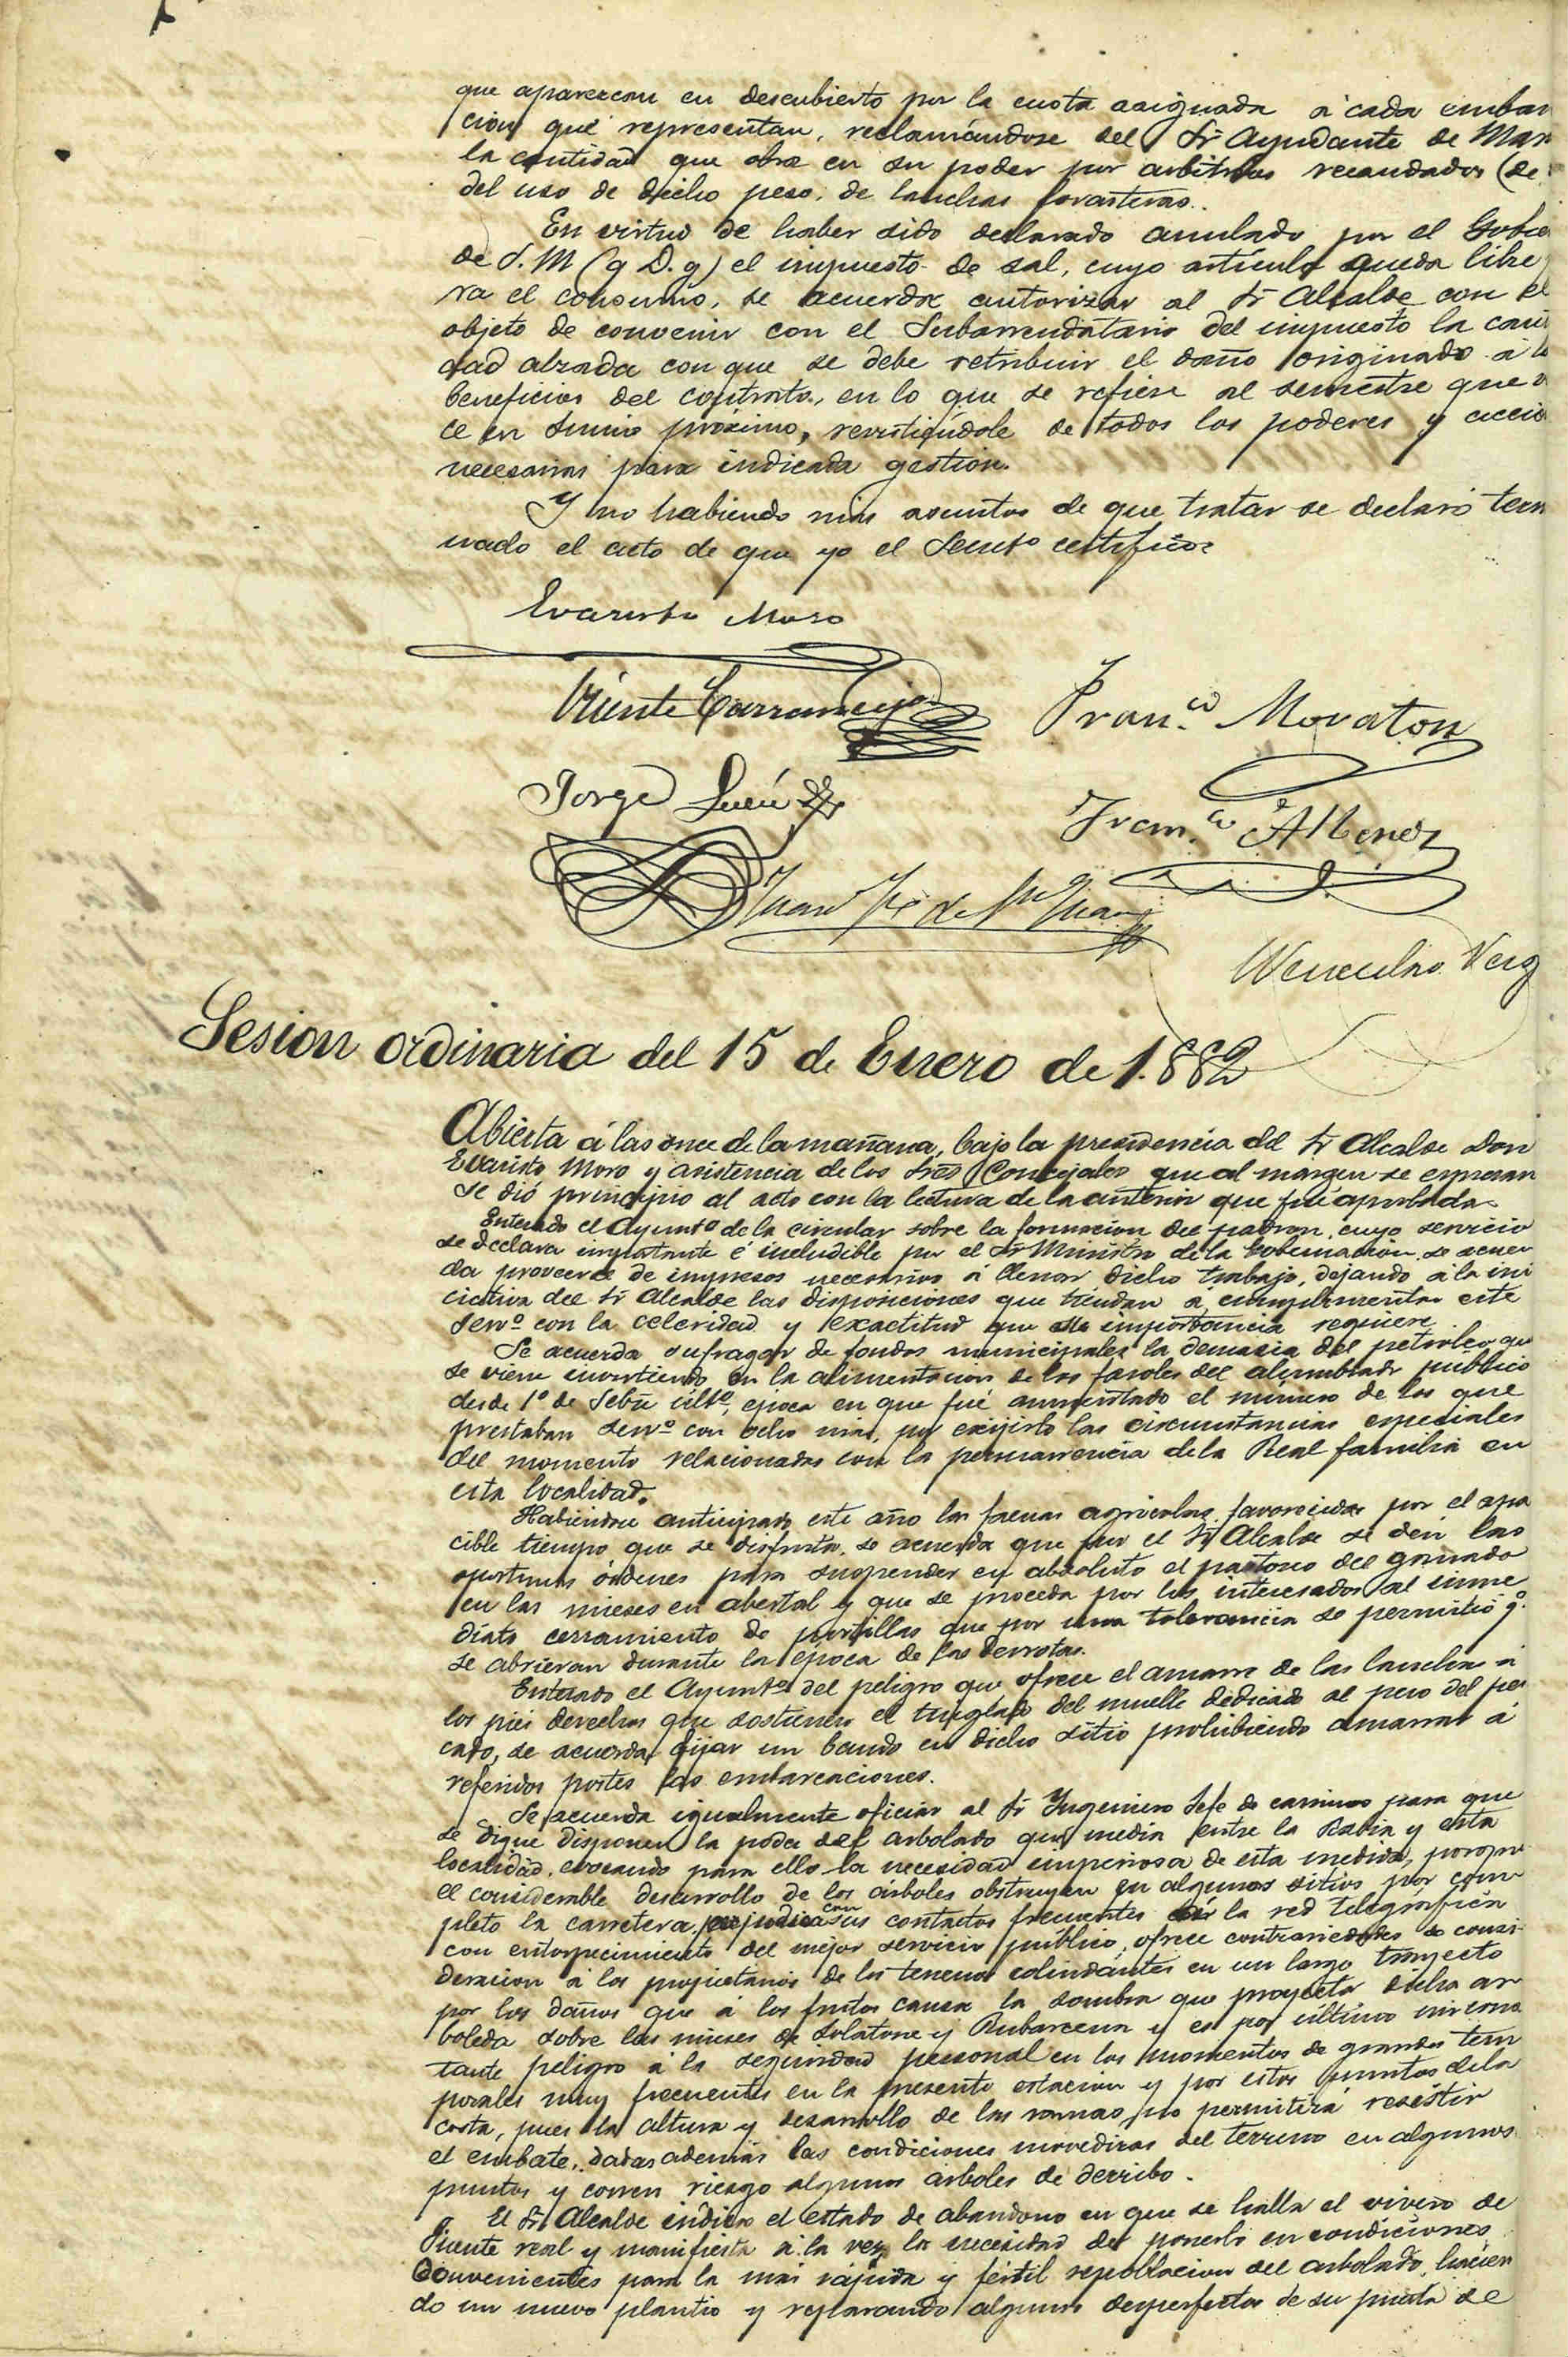 que aparezcan en descubierto por la cuota asignada á cada embar
cion que representan, reclamándose del Sr Ayudante de Mar
la cantidad que obra en su poder por arbitrios recaudados (de
del uso de dicho peso, de lanchas forasteras.
En virtud de haber sido declarado anulado por el Gobie
de S. M (q D. g) el impuesto de sal, cuyo artículo queda libre
ra el consumo, se acuerda autorizar al Sr Alcalde con el
objeto de convenir con el Subarrendatario del impuesto la can
dad alzada con que se debe retribuir el daño originado á l
beneficios del contrato, en lo que se refiere al semestre que
ce en Junio próximo, revistiéndole de todos los poderes y accio
necesarias para indicada gestion.
Y no habiendo mas asuntos de que tratar se declaró term
nado el acto de que yo el Secreto certifico=
Evaristo Moro
Vicente Carranceja
Franco Movaton
Jorge
Franco
Juan de
Wenceslao Verg
Sesion ordinaria del 15 de Enero de 1.882
Abierta á las once de la mañana, bajo la presidencia del Sr Alcalde Don
Evaristo Moro y asistencia de los Sres Concejales que al margen se expresan
se dió principio al acto con la lectura de la anterior que fué aprobada.
Enterado el Ayunto de la circular sobre la formacion del padron, cuyo servicio
se declara importante é ineludible por el Sr Ministro de la Gobernacion, se acuer
da proveerse de impresos necesarios á llenar dicho trabajo, dejando á la ini
ciativa del Sr Alcalde las disposiciones que tiendan á cumplimentar este
servo con la celeridad y exactitud que su importancia requiere.
Se acuerda sufragar de fondos municipales la demasía del petroleo que
se viene invirtiendo en la alimentacion de los faroles del alumbrado publico
desde 1º de Sebre últo, época en que fué aumentado el número de los que
prestaban servo con ocho mas, por exijirlo las circunstancias especiales
del momento relacionadas con la permanencia de la Real familia en
esta localidad.
Habiendose anticipado este año las faenas agrícolas, favorecidas por el apa
cible tiempo que se disfruta, se acuerda que por el Sr Alcalde se den las
oportunas órdenes para suspender en absoluto el pastoreo del ganado
en las mieses en abertal y que se proceda por los interesados al inme
diato cerramiento de portillas que por una tolerancia se permitió q.
se abrieran durante la época de las derrotas.
Enterado el Ayunto del peligro que ofrece el amarre de las lanchas á
los piés derechos que sostienen el tinglado del muelle dedicado al peso del pes
cado, se acuerda fijar un bando en dicho sitio prohibiendo amarrar á
referidos postes las embarcaciones.
Se acuerda igualmente oficiar al Sr Ingeniero Jefe de caminos para que
se digne disponer la poda del arbolado que media entre la Rabia y esta
localidad, evocando para ello la necesidad imperiosa de esta medida, porque
el considerable desarrollo de los árboles obstruyen en algunos sitios por com
pleto la carretera, perjudica con sus contactos frecuentes la red telegráfica
con entorpecimiento del mejor servicio público, ofrece contrariedades de consi
deracion á los propietarios de los terrenos colindantes en un largo trayecto
por los daños que á los frutos causa la sombra que proyecta dicha ar
boleda sobre las mieses de Solatorre y Rubarcena y es por último un cons
tante peligro á la seguridad personal en los momentos de grandes tem
porales muy frecuentes en la presente estacion y por estos puntos de la
costa, pues la altura y desarrollo de las ramas no permitirá resistir
el embate, dadas además las condiciones movedizas del terreno en algunos
puntos y corren riesgo algunos árboles de derribo.
El Sr Alcalde indica el estado de abandono en que se halla el vivero de
Fuente real y manifiesta á la vez la necesidad de ponerlo en condiciones
convenientes para la mas rápida y fértil repoblacion del arbolado, hacien
do un nuevo plantio y reparando algunos desperfectos de su puerta de